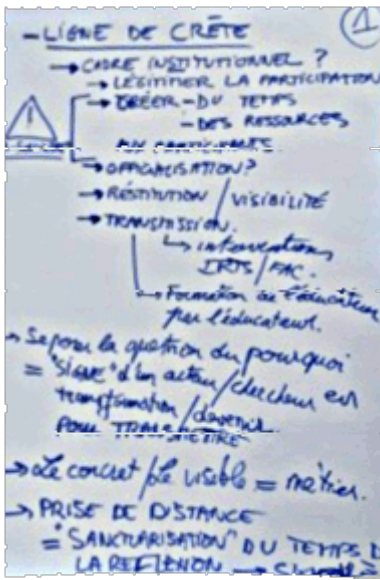 - LIGNE DE CRÊTE ①
→ CADRE INSTITUTIONNEL ?
→ LÉGITIMER LA PARTICIPATION
→ CRÉER - DU TEMPS
- DES RESSOURCES
AUX PARTICIPANTS
→ OFFICIALISATION ?
→ RESTITUTION / VISIBILITÉ
→ TRANSMISSION.
↳ interventions
IRTS / FAC.
↳ Formation de l'éducateur
par l'éducateur.
→ Se poser la question du pourquoi
= "SIGNE" d'un acteur / chercheur en
transformation / devenir
POUR TRANSMETTRE
→ Le concret / le visible = métier.
→ PRISE DE DISTANCE
= "SANCTUARISATION" DU TEMPS D
LA REFLEXION →